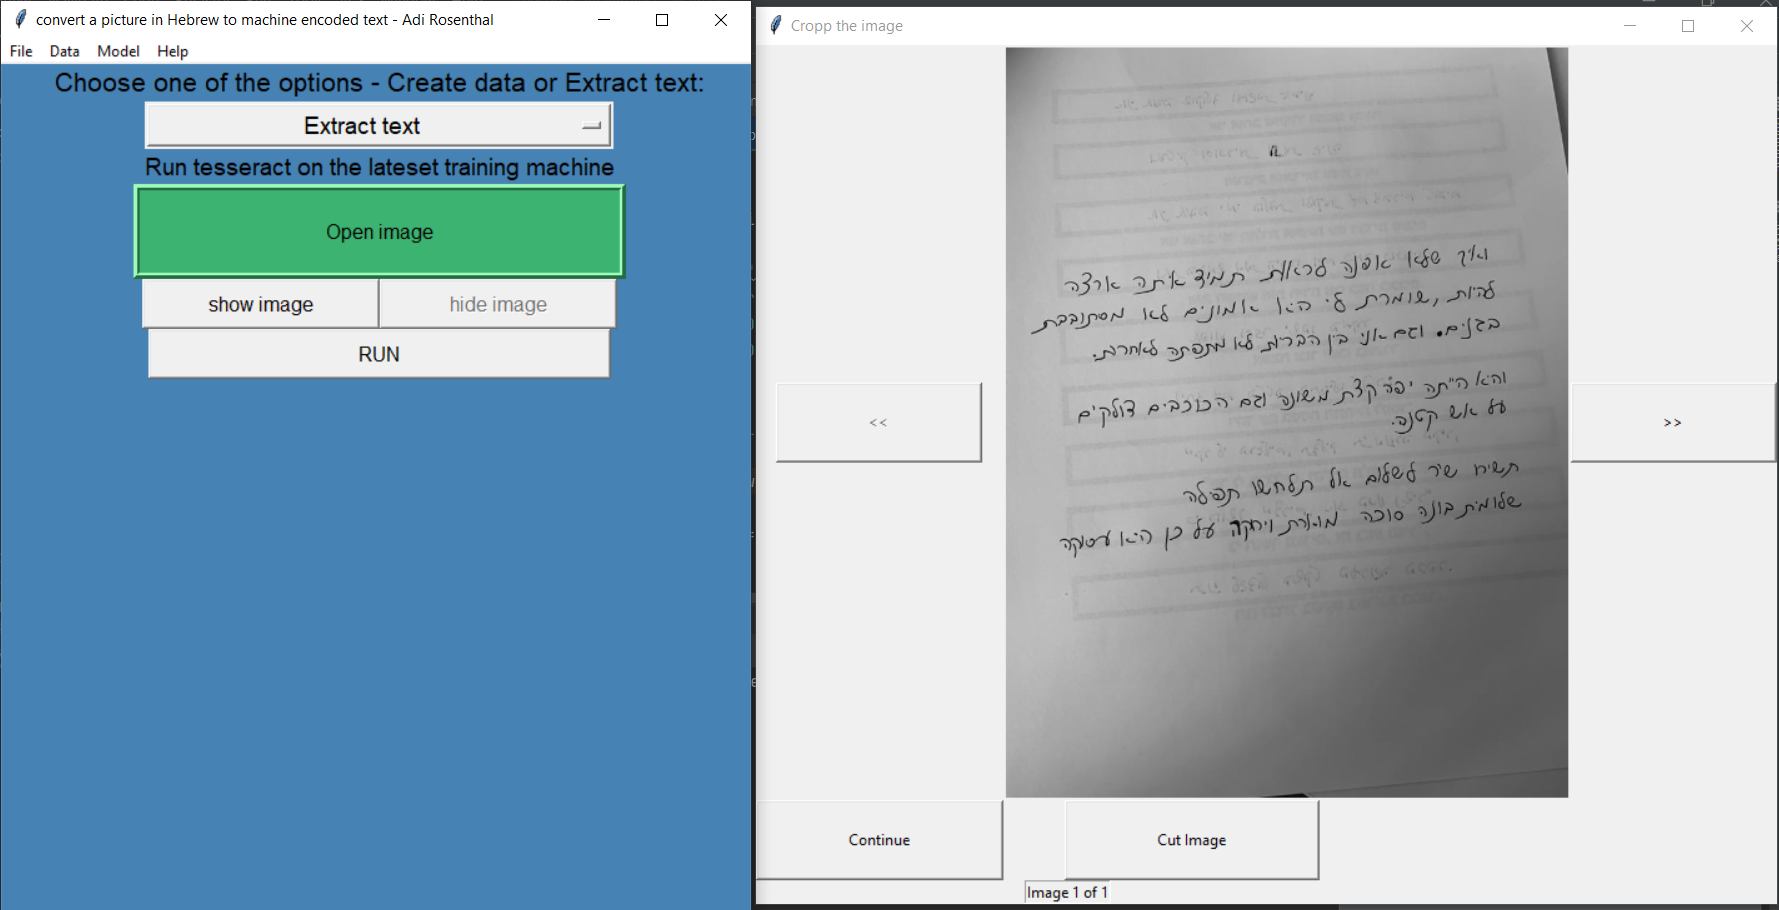 convert a picture in Hebrew to machine encoded text - Adi Rosenthal
File Data Model Help
Choose one of the options - Create data or Extract text:
Extract text
Run tesseract on the lateset training machine
Open image
show image hide image
RUN
Cropp the image
ואיך שלא אפנה לראות תמיד איתה ארצה
להיות, שומרת לי היא אמונים לא מסתובבת
בגנים. וגם אני בין הבריות לא מתפתה לאחרות.
והיא הייתה יפה קצת משונה וגם הכוכבים דולקים
על אש קטנה.
תשירו שיר לשלום אל תלחשו תפילה
שלומית בונה סוכה מוארת וירוקה על כן היא עסוקה
<<
>>
Continue Cut Image
Image 1 of 1